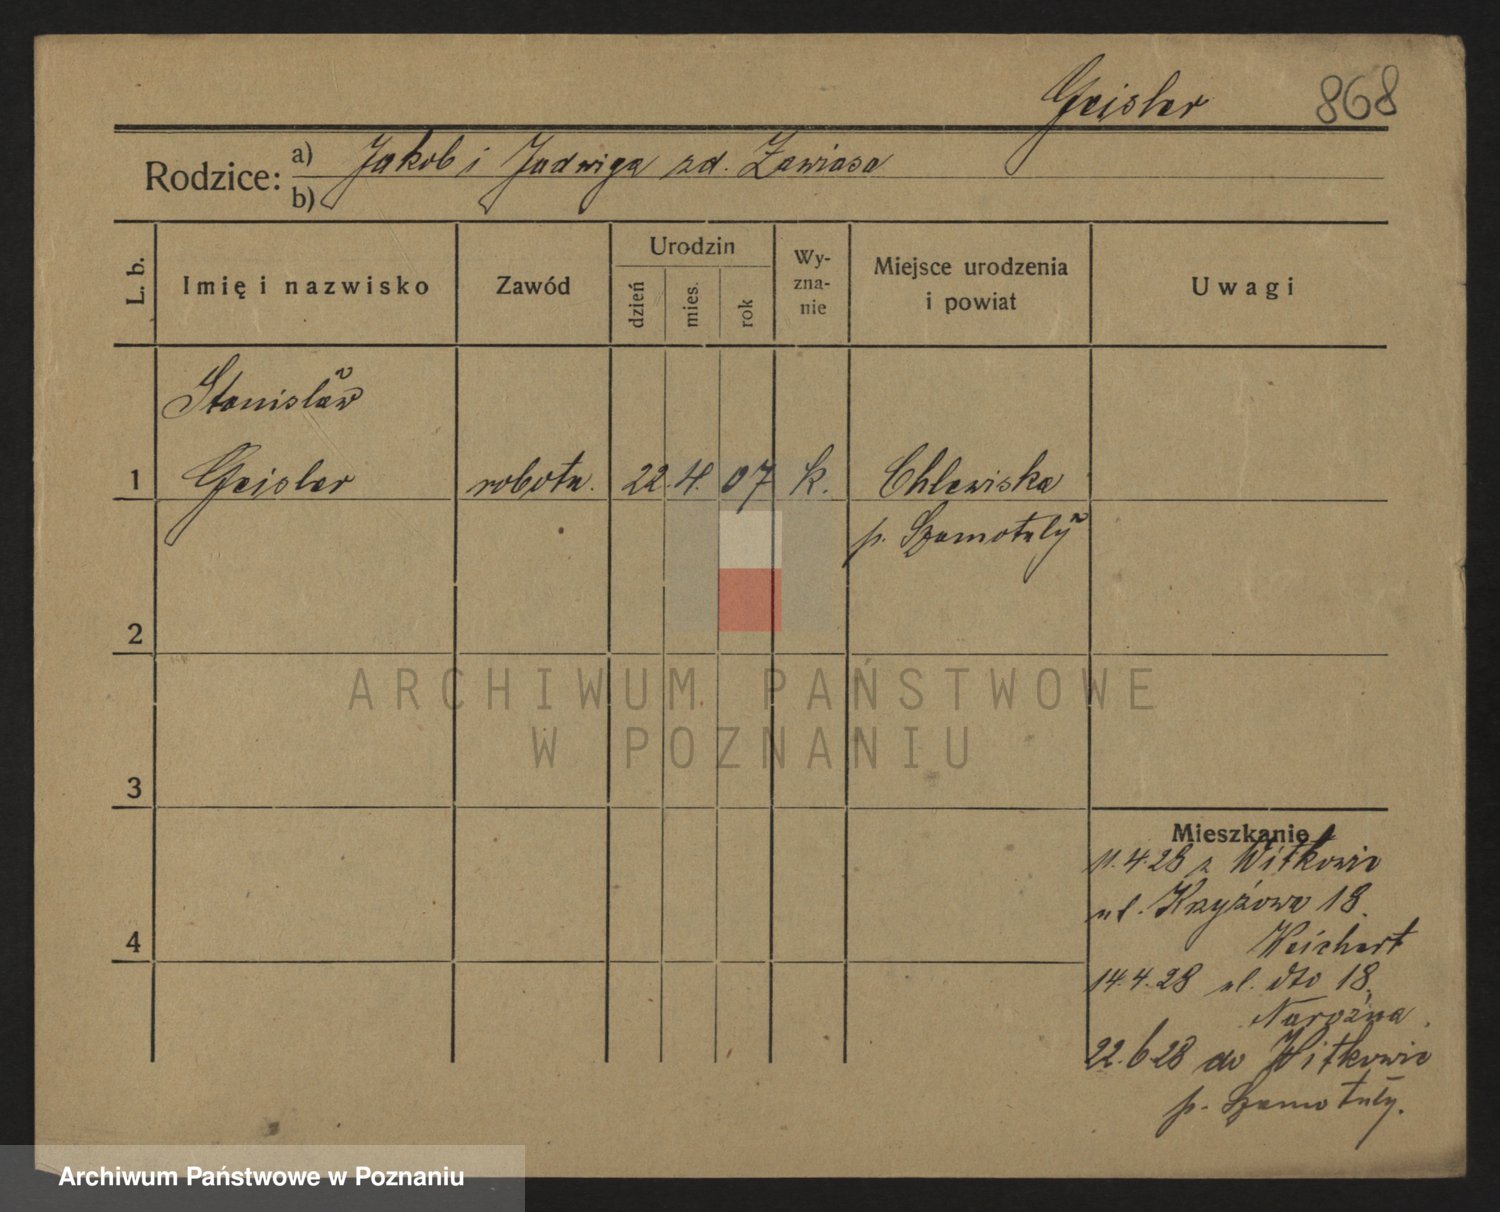 Geisler 868
Rodzice: a) Jakob i Jadwiga zd. Zawiasa
b)
L. b. Imię i nazwisko Zawód Urodzin dzień mies. rok Wy-zna-nie Miejsce urodzenia i powiat Uwagi
Stanisław
1 Geisler robotn. 22. 4. 07 k. Chlewiska
p. Szamotuły
2
ARCHIWUM PAŃSTWOWE
W POZNANIU
3
Mieszkanie
11.4.28 z Witkowic
ul. Krzyżowa 18.
4 Weichert
14.4.28 ul. dto 18.
Narożna.
22.6.28 do Witkowic
p. Szamotuły.
Archiwum Państwowe w Poznaniu